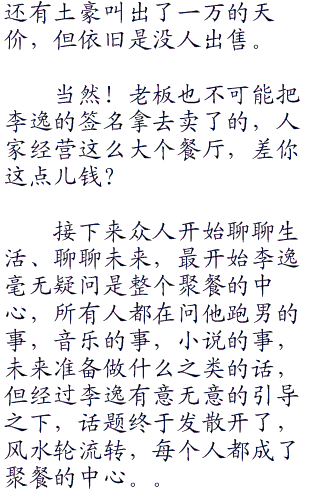 还有土豪叫出了一万的天
价，但依旧是没人出售。
当然！老板也不可能把
李逸的签名拿去卖了的，人
家经营这么大个餐厅，差你
这点儿钱？
接下来众人开始聊聊生
活、聊聊未来，最开始李逸
毫无疑问是整个聚餐的中
心，所有人都在问他跑男的
事，音乐的事，小说的事，
未来准备做什么之类的话，
但经过李逸有意无意的引导
之下，话题终于发散开了，
风水轮流转，每个人都成了
聚餐的中心。。